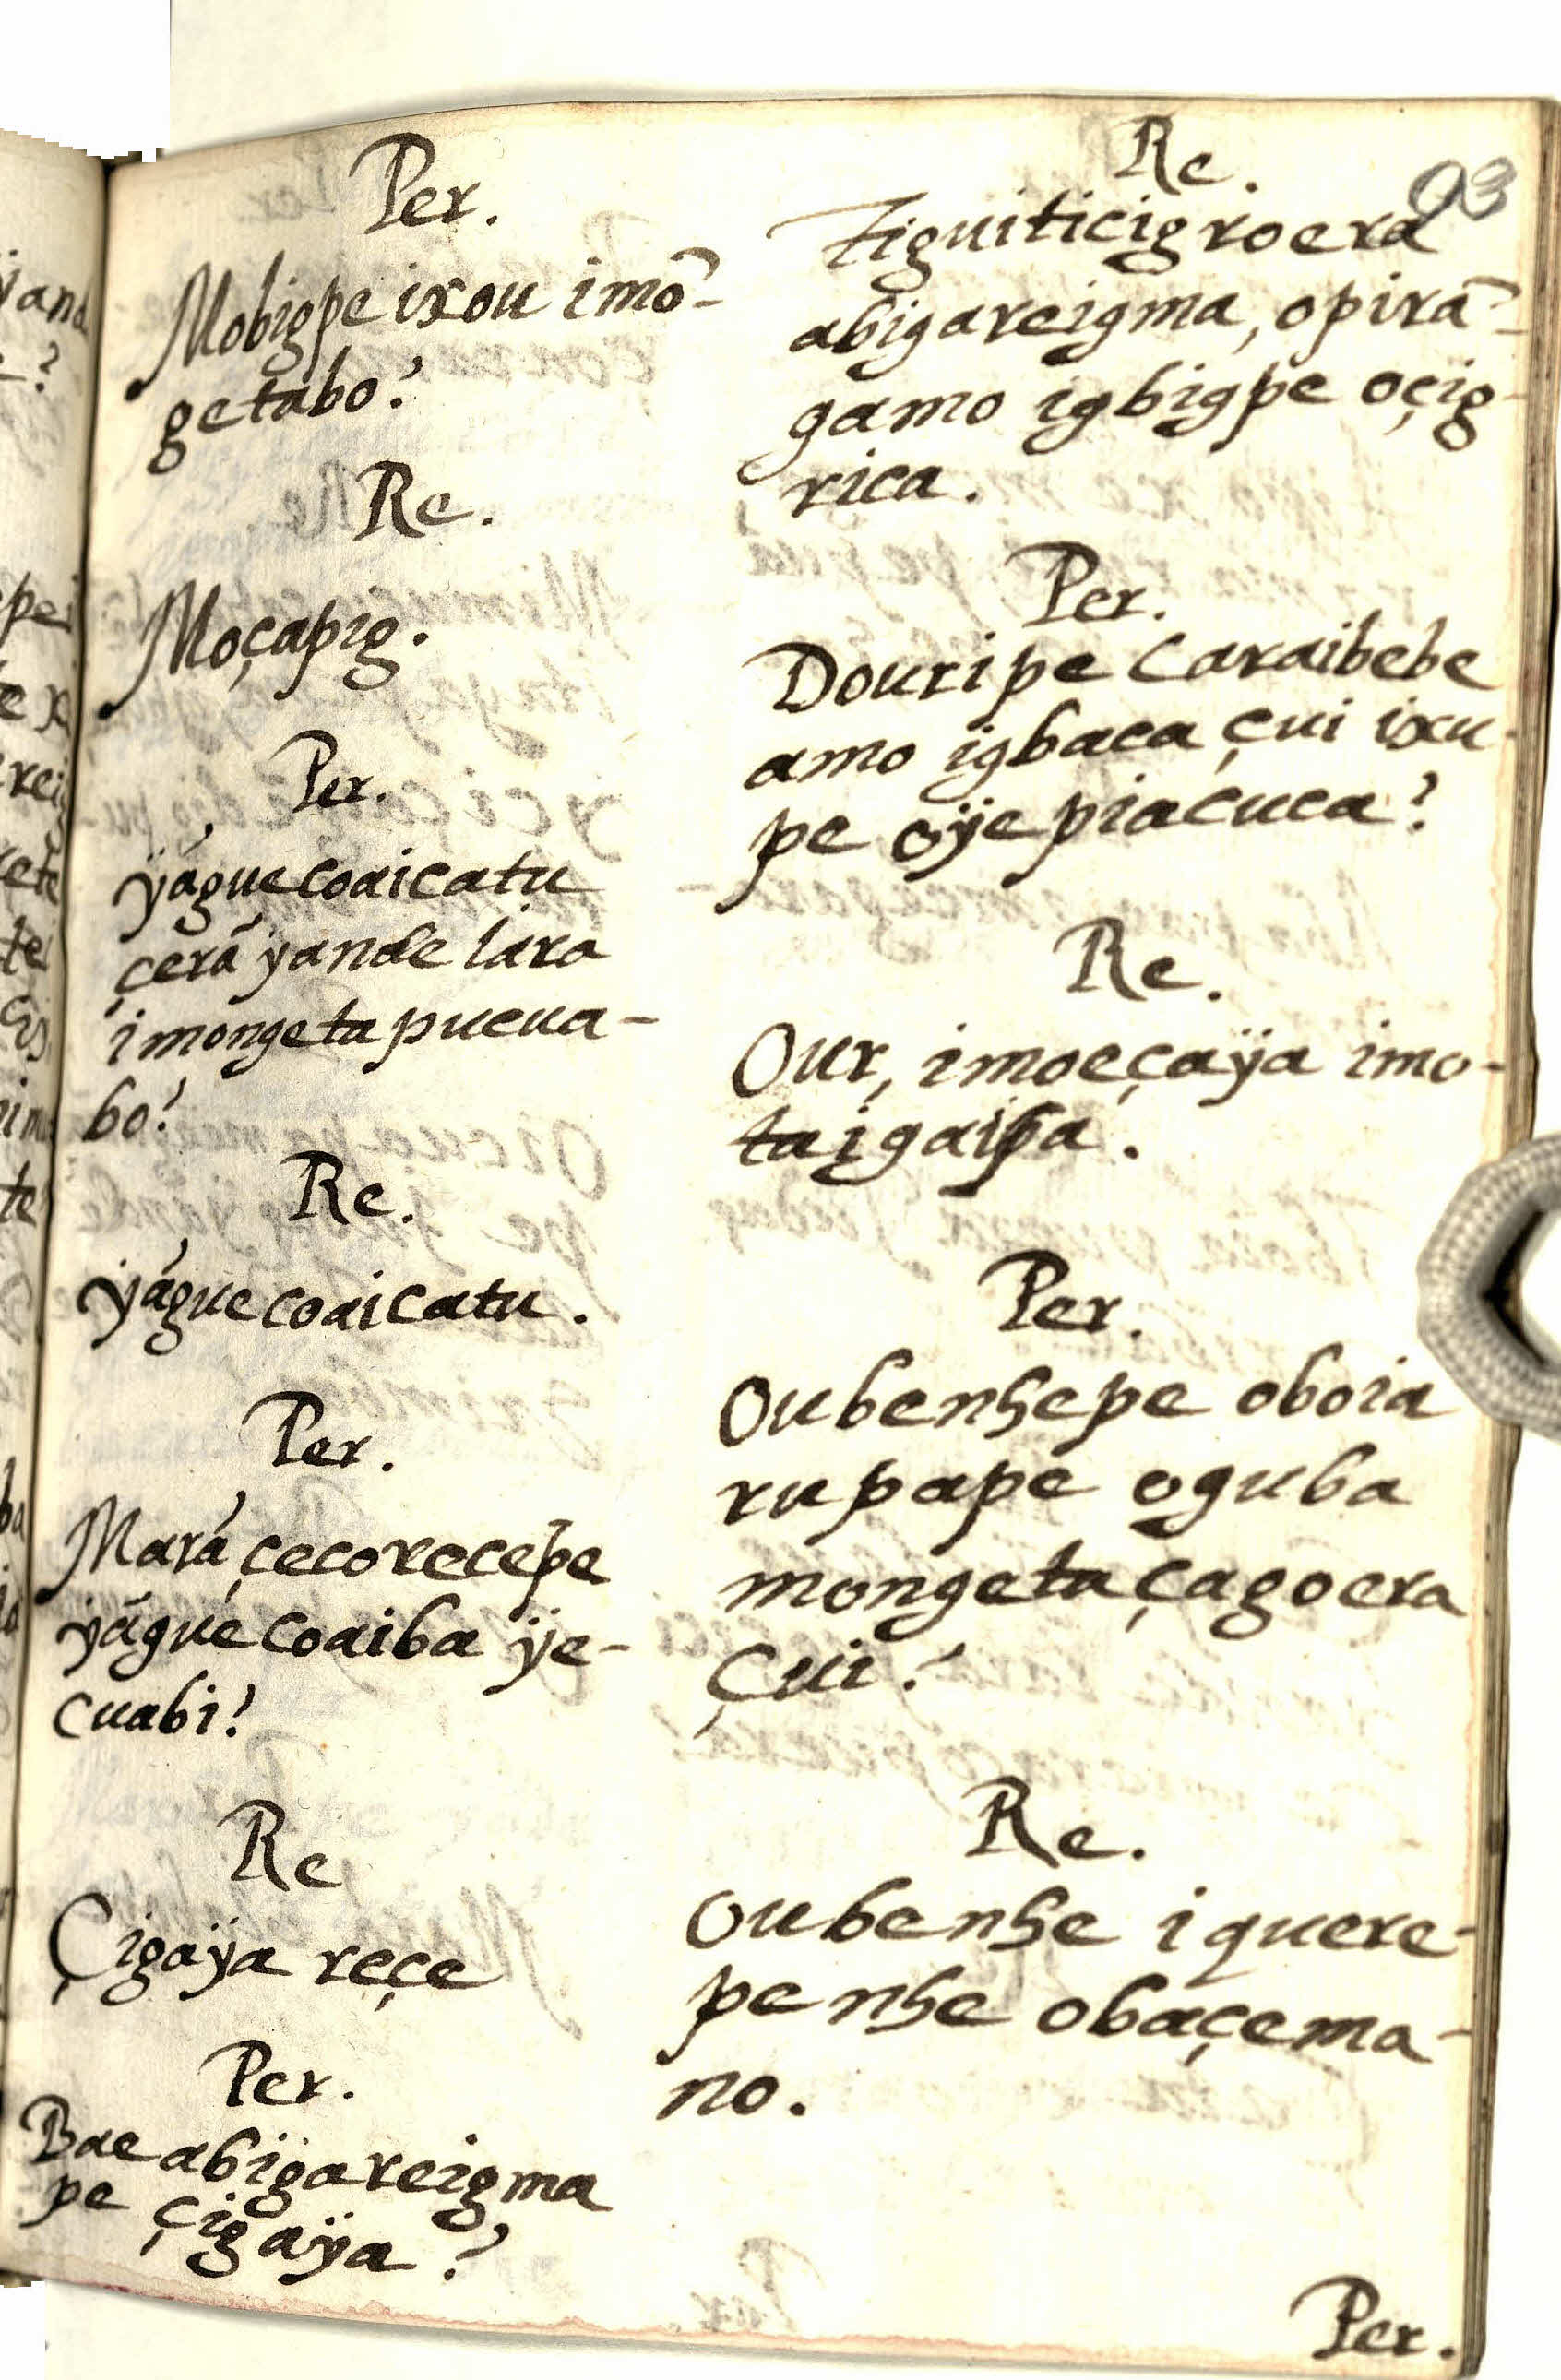 Per.
Mobigpe ixou imõ-
getabo?
Re.
Moçapig.
Per.
ÿáguecoaicatu
çerã yande iara
imongetapucua-
bo?
Re.
ÿáguecoaicatu.
Per.
Marã çecorecepe
ÿáguecoaiba ÿe-
cuabi?
Re
Çigaÿa reçe
Per.
Bae abigareigma
pe çigaÿa?
93
Re.
Tiguiticigroera
abigareigma, opirã-
gamo igbigpe oçig-
rica.
Per.
Douripe Caraibebe
amo igbaca çui ixu-
pe oÿepiacuca?
Re.
Our, imoeçaÿa imo-
taigaiba.
Per.
Oubenhepe oboia
rupape oguba
mongetaçagoera
Çui?
Re.
Oubenhe iquere-
penhe obaçema-
no.
Per.